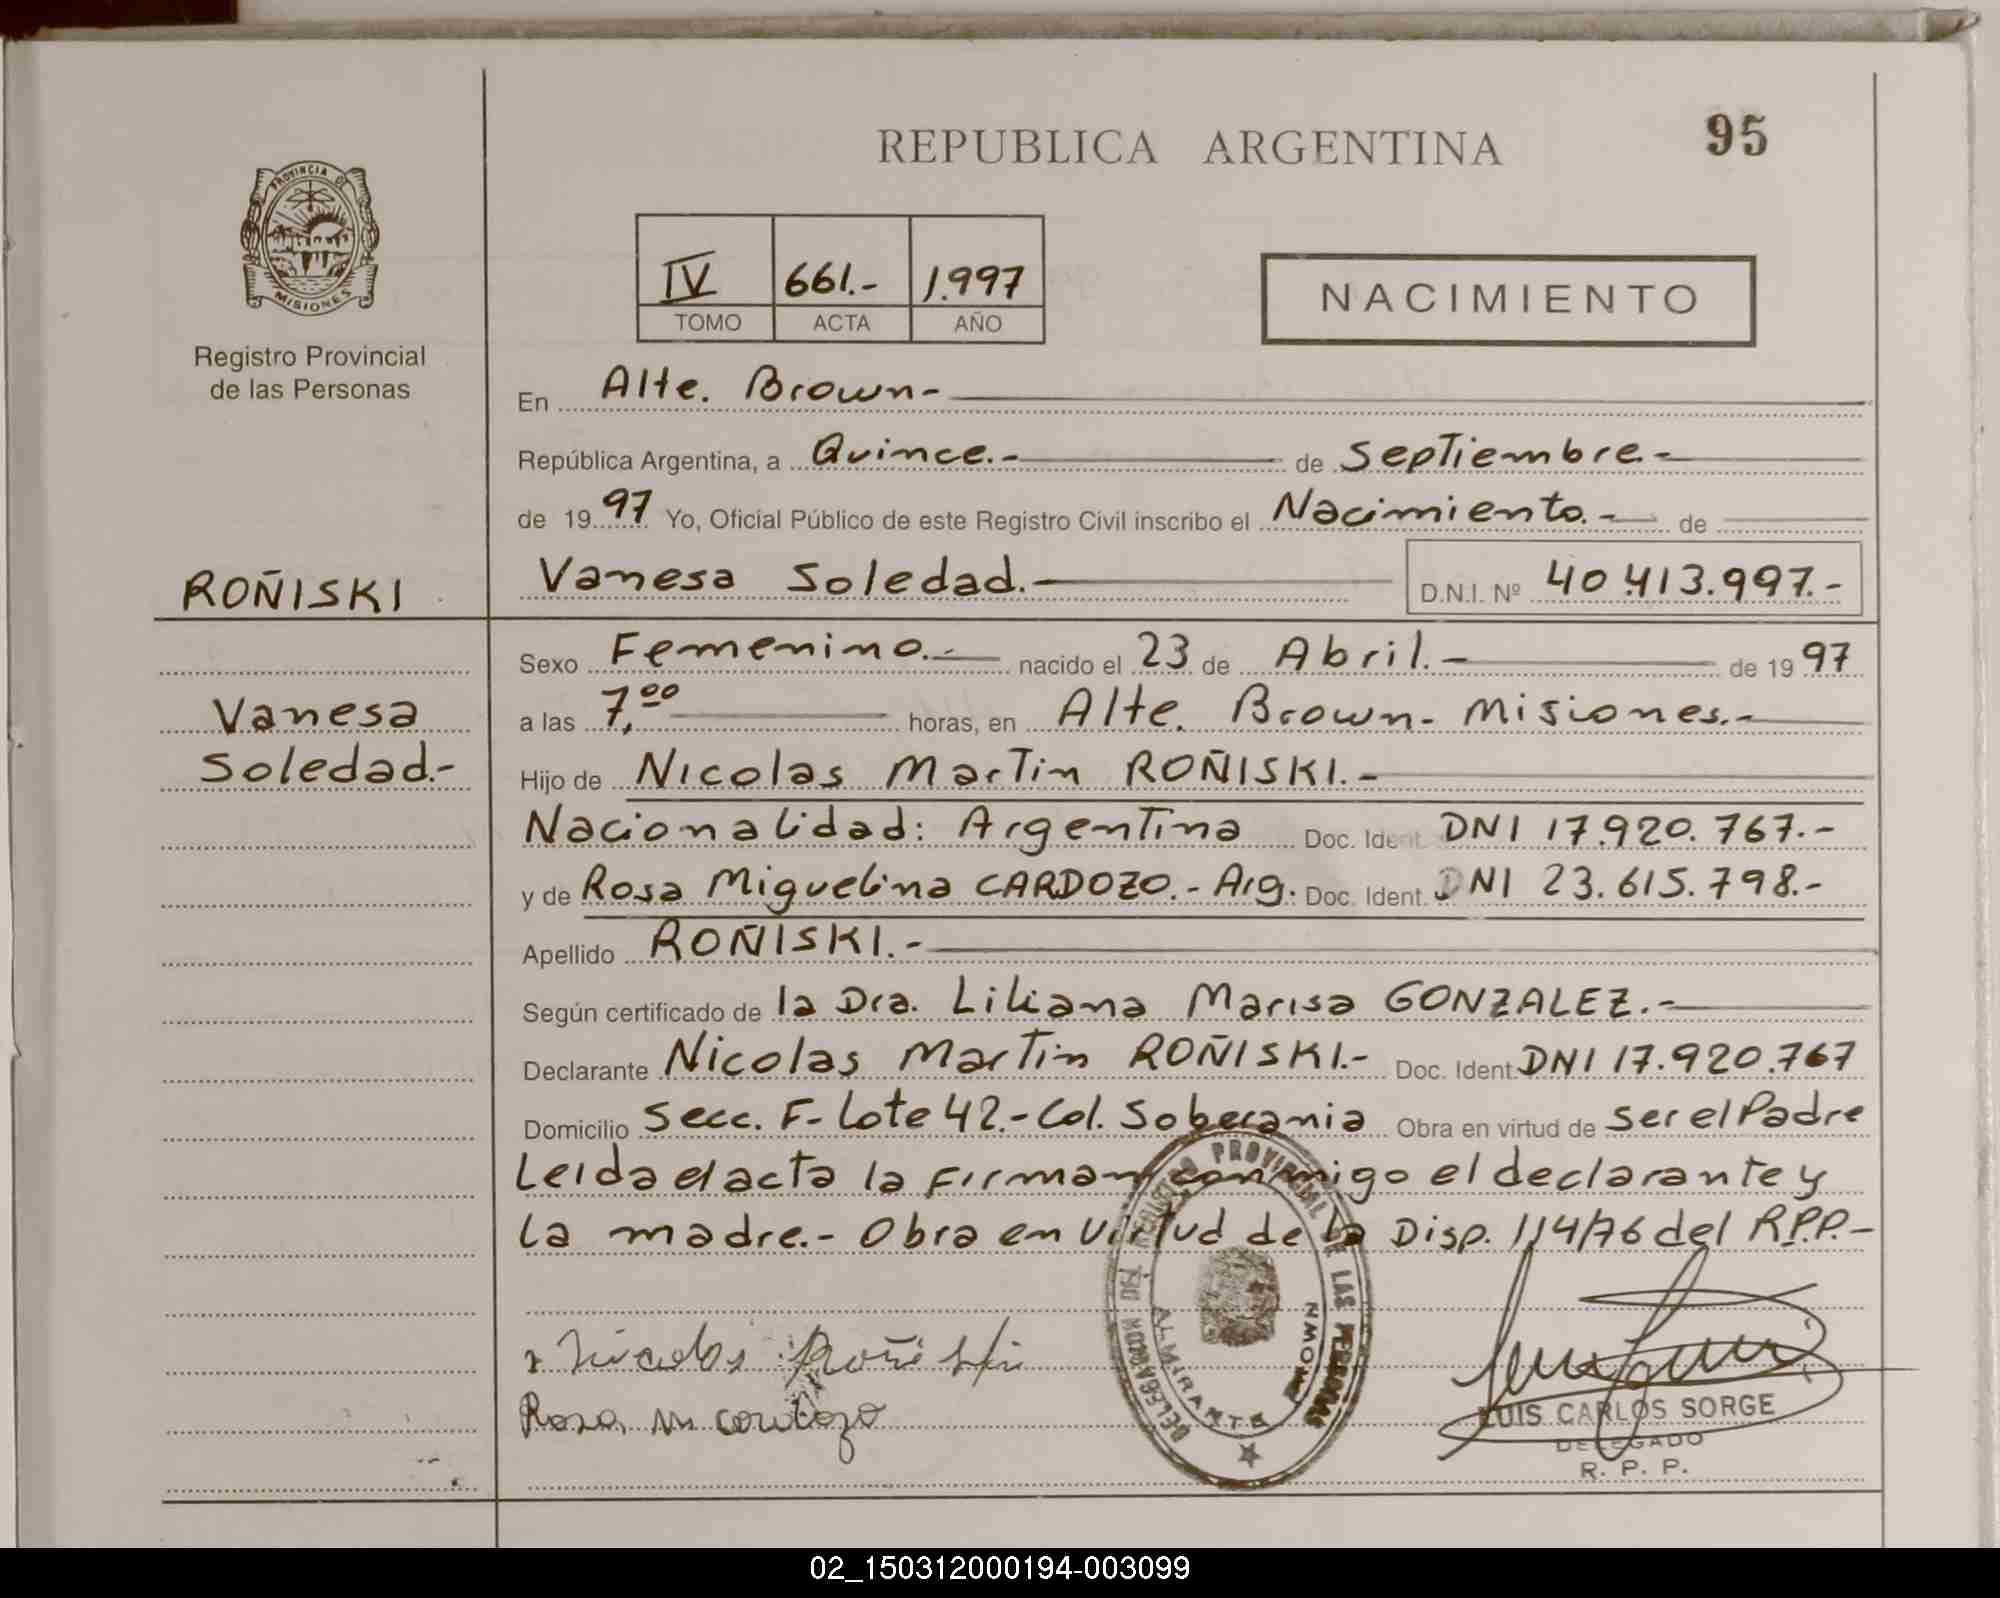 REPUBLICA ARGENTINA
95
PROVINCIA DE
MISIONES
Registro Provincial
de las Personas
IV 661.- 1.997
TOMO ACTA AÑO
NACIMIENTO
En Alte. Brown-
República Argentina, a Quince.- de Septiembre.-
de 1997 Yo, Oficial Público de este Registro Civil inscribo el Nacimiento.- de
ROÑISKI
Vanesa Soledad.- D.N.I. Nº 40.413.997.-
Sexo Femenino.- nacido el 23 de Abril.- de 1997
Vanesa
Soledad.-
a las 7,00 horas, en Alte. Brown- Misiones.-
Hijo de Nicolas Martin ROÑISKI.-
Nacionalidad: Argentina Doc. Ident. DNI 17.920.767.-
y de Rosa Miguelina CARDOZO.- Arg. Doc. Ident. DNI 23.615.798.-
Apellido ROÑISKI.-
Según certificado de la Dra. Liliana Marisa GONZALEZ.-
Declarante Nicolas Martin ROÑISKI.- Doc. Ident. DNI 17.920.767
Domicilio Secc. F- Lote 42.- Col. Soberania Obra en virtud de ser el Padre
Leida el acta la Firman conmigo el declarante y
la madre.- Obra en virtud de la Disp. 114/76 del R.P.P.-
DELEGACION DEL REGISTRO PROVINCIAL DE LAS PERSONAS
ALMIRANTE BROWN
Nicolas Roñiski
Rosa M cardozo
LUIS CARLOS SORGE
DELEGADO
R. P. P.
02_150312000194-003099